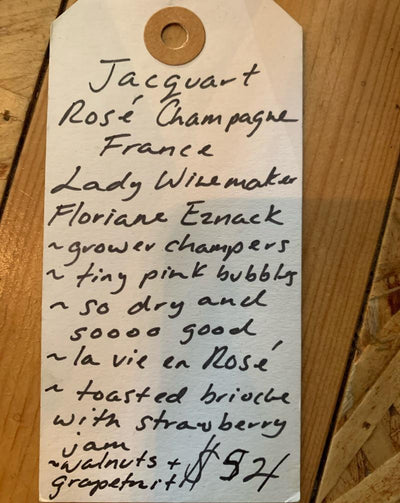 Jacquart
Rosé Champagne
France
Lady Winemaker
Floriane Eznack
~ grower champers
~ tiny pink bubbles
~ so dry and
soooo good
~ la vie en Rosé
~ toasted brioche
with strawberry
jam
~ walnuts +
grapefruit $52